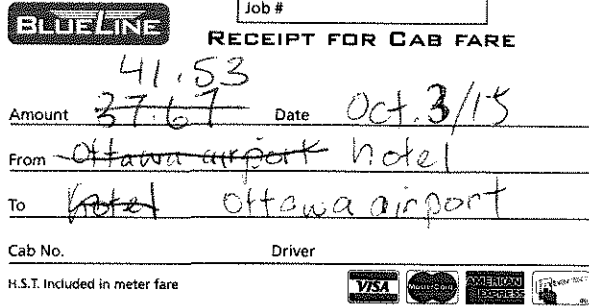 Job #
BLUELINE
RECEIPT FOR CAB FARE
41.53
Amount 37.67 Date Oct. 3/15
From Ottawa airport hotel
To hotel Ottawa airport
Cab No. Driver
H.S.T. Included in meter fare
VISA MasterCard AMERICAN EXPRESS